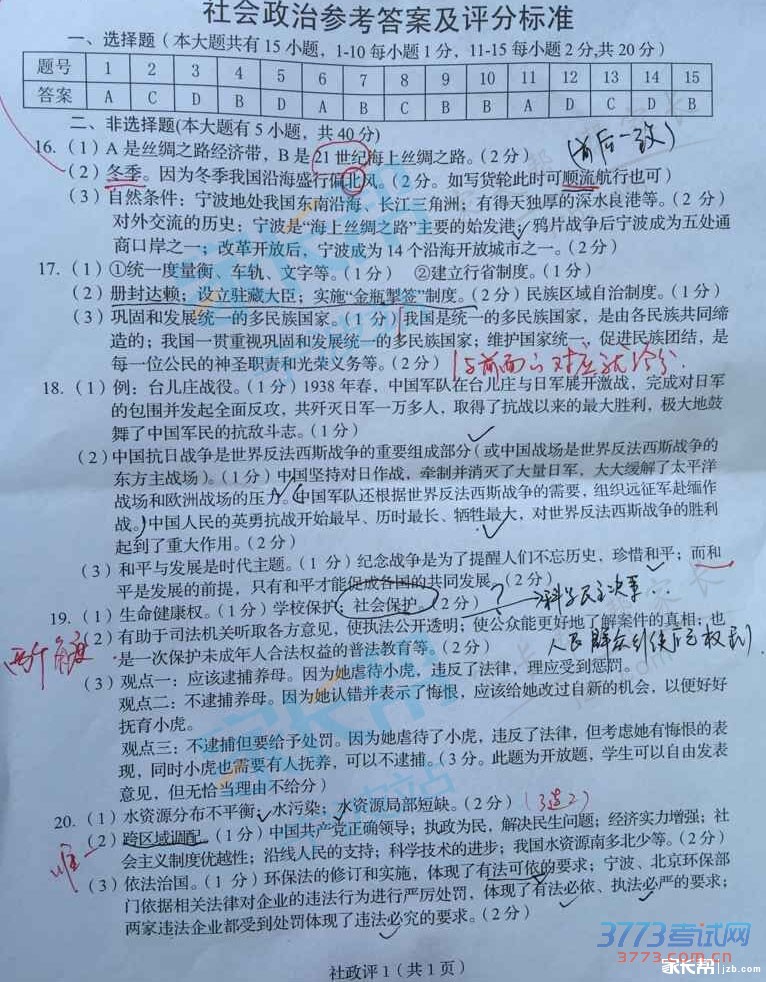 社会政治参考答案及评分标准
一、选择题（本大题共有15小题，1-10每小题1分，11-15每小题2分,共20分）
题号 1 2 3 4 5 6 7 8 9 10 11 12 13 14 15
答案 A C D B D A B C B B A D C D B
二、非选择题(本大题有5小题，共40分)
(前后一致)
16.（1）A是丝绸之路经济带，B是21世纪海上丝绸之路。（2分）
（2）冬季。因为冬季我国沿海盛行偏北风。（2分。如写货轮此时可顺流航行也可）
（3）自然条件：宁波地处我国东南沿海、长江三角洲；有得天独厚的深水良港等。（2分）
对外交流的历史：宁波是“海上丝绸之路”主要的始发港；鸦片战争后宁波成为五处通
商口岸之一；改革开放后，宁波成为14个沿海开放城市之一。（2分）
17.（1）①统一度量衡、车轨、文字等。（1分） ②建立行省制度。（1分）
（2）册封达赖；设立驻藏大臣；实施“金瓶掣签”制度。（2分）民族区域自治制度。（1分）
（3）巩固和发展统一的多民族国家。（1分）我国是统一的多民族国家，是由各民族共同缔
造的；我国一贯重视巩固和发展统一的多民族国家；维护国家统一，促进民族团结，是
每一位公民的神圣职责和光荣义务等。（2分）
18.（1）例：台儿庄战役。（1分）1938年春，中国军队在台儿庄与日军展开激战，完成对日军
的包围并发起全面反攻，共歼灭日军一万多人，取得了抗战以来的最大胜利，极大地鼓
舞了中国军民的抗敌斗志。（1分）
（2）中国抗日战争是世界反法西斯战争的重要组成部分（或中国战场是世界反法西斯战争的
东方主战场）。（1分）中国坚持对日作战，牵制并消灭了大量日军，大大缓解了太平洋
战场和欧洲战场的压力。中国军队还根据世界反法西斯战争的需要，组织远征军赴缅作
战。中国人民的英勇抗战开始最早、历时最长、牺牲最大，对世界反法西斯战争的胜利
起到了重大作用。（2分）
（3）和平与发展是时代主题。（1分）纪念战争是为了提醒人们不忘历史，珍惜和平；而和
平是发展的前提，只有和平才能促成各国的共同发展。（2分）
19.（1）生命健康权。（1分）学校保护；社会保护。（2分）
（2）有助于司法机关听取各方意见，使执法公开透明；使公众能更好地了解案件的真相；也
是一次保护未成年人合法权益的普法教育等。（2分）
（3）观点一：应该逮捕养母。因为她虐待小虎，违反了法律，理应受到惩罚。
观点二：不逮捕养母。因为她认错并表示了悔恨，应该给她改过自新的机会，以便好好
抚育小虎。
观点三：不逮捕但要给予处罚。因为她虐待了小虎，违反了法律，但考虑她有悔恨的表
现，同时小虎也需要有人抚养，可以不逮捕。（3分。此题为开放题，学生可以自由发表
意见，但无恰当理由不给分）
20.（1）水资源分布不平衡；水污染；水资源局部短缺。（2分）(3选2)
（2）跨区域调配。（1分）中国共产党正确领导；执政为民，解决民生问题；经济实力增强；社
会主义制度优越性；沿线人民的支持；科学技术的进步；我国水资源南多北少等。（2分）
唯一
（3）依法治国。（1分）环保法的修订和实施，体现了有法可依的要求；宁波、北京环保部
门依据相关法律对企业的违法行为进行严厉处罚，体现了有法必依、执法必严的要求；
两家违法企业都受到处罚体现了违法必究的要求。（2分）
社政评1（共1页）
3773考试网
3773.com.cn
家长帮 jzb.com